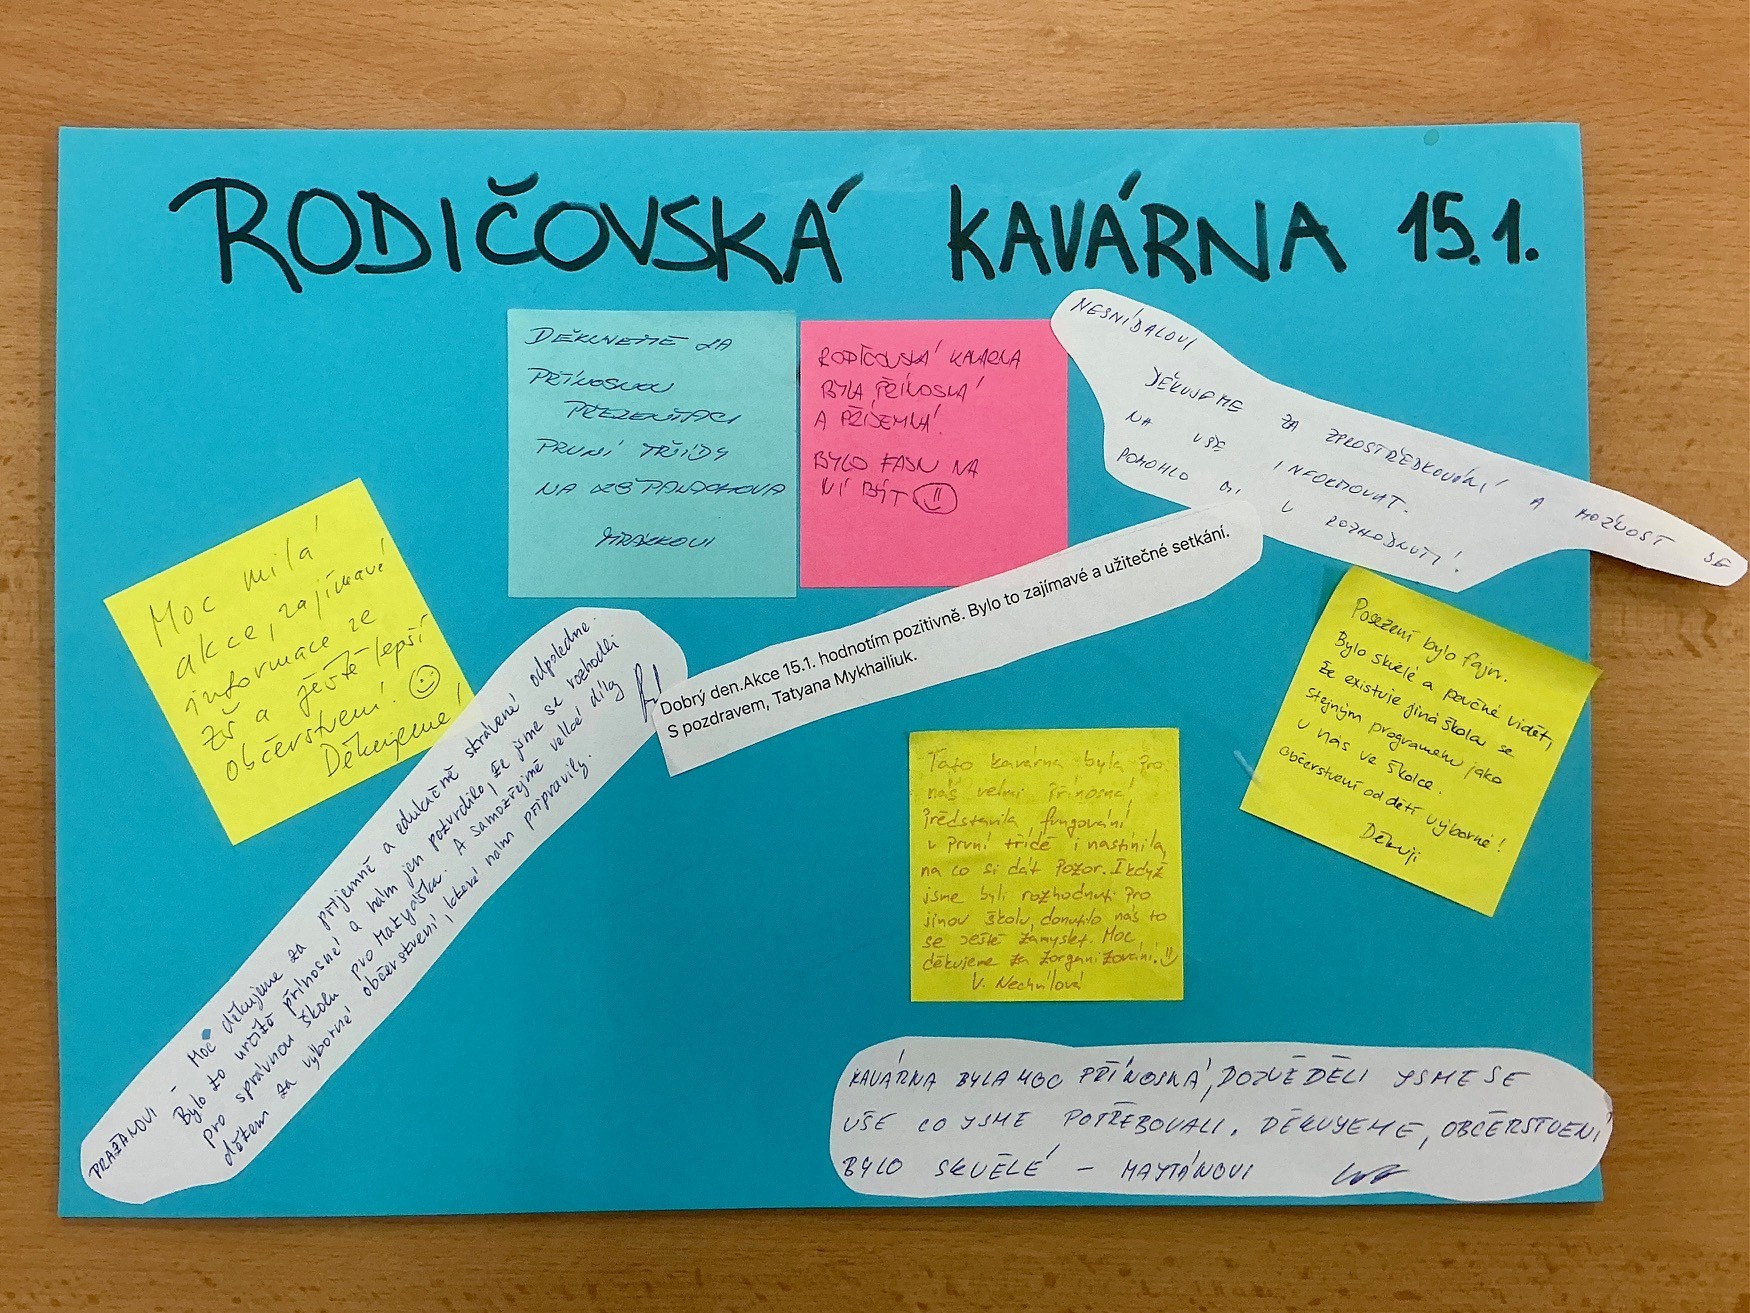 RODIČOVSKÁ KAVÁRNA 15.1.
DĚKUJEME ZA
PŘÍNOSNOU
PREZENTACI
PRVNÍ TŘÍDY
NA ZŠ PALACHOVA
MRÁZKOVI
RODIČOVSKÁ KAVÁRNA
BYLA PŘÍNOSNÁ
A PŘÍJEMNÁ.
BYLO FAJN NA
NÍ BÝT
NESNÍDALOVI
DĚKUJEME ZA ZPROSTŘEDKOVÁNÍ A MOŽNOST SE
NA VŠE INFORMOVAT.
POMOHLO MI V ROZHODNUTÍ!
Moc milá
akce, zajímavé
informace ze
ZŠ a ještě lepší
občerstvení!
Děkujeme!
Dobrý den.Akce 15.1. hodnotím pozitivně. Bylo to zajímavé a užitečné setkání.
S pozdravem, Tatyana Mykhailiuk.
Posezení bylo fajn.
Bylo skvělé a poučné vidět,
že existuje jiná škola se
stejným programem jako
u nás ve školce.
Občerstvení od dětí výborné!
Děkuji
PRAŽANOVI - Moc děkujeme za příjemně a edukačně strávené odpoledne.
Bylo to určitě přínosné a nám jen potvrdilo, že jsme se rozhodli
pro správnou školu pro Matyáška. A samozřejmě velké díky
dětem za výborné občerstvení, které nám připravily.
Tato kavárna byla pro
nás velmi přínosná,
představila fungování
v první třídě i nastínila,
na co si dát pozor. I když
jsme byli rozhodnuti pro
jinou školu, donutilo nás to
se ještě zamyslet. Moc
děkujeme za zorganizování.
V. Nechvílová
KAVÁRNA BYLA MOC PŘÍNOSNÁ, DOZVĚDĚLI JSME SE
VŠE CO JSME POTŘEBOVALI. DĚKUJEME, OBČERSTVENÍ
BYLO SKVĚLÉ - MAJTÁNOVI